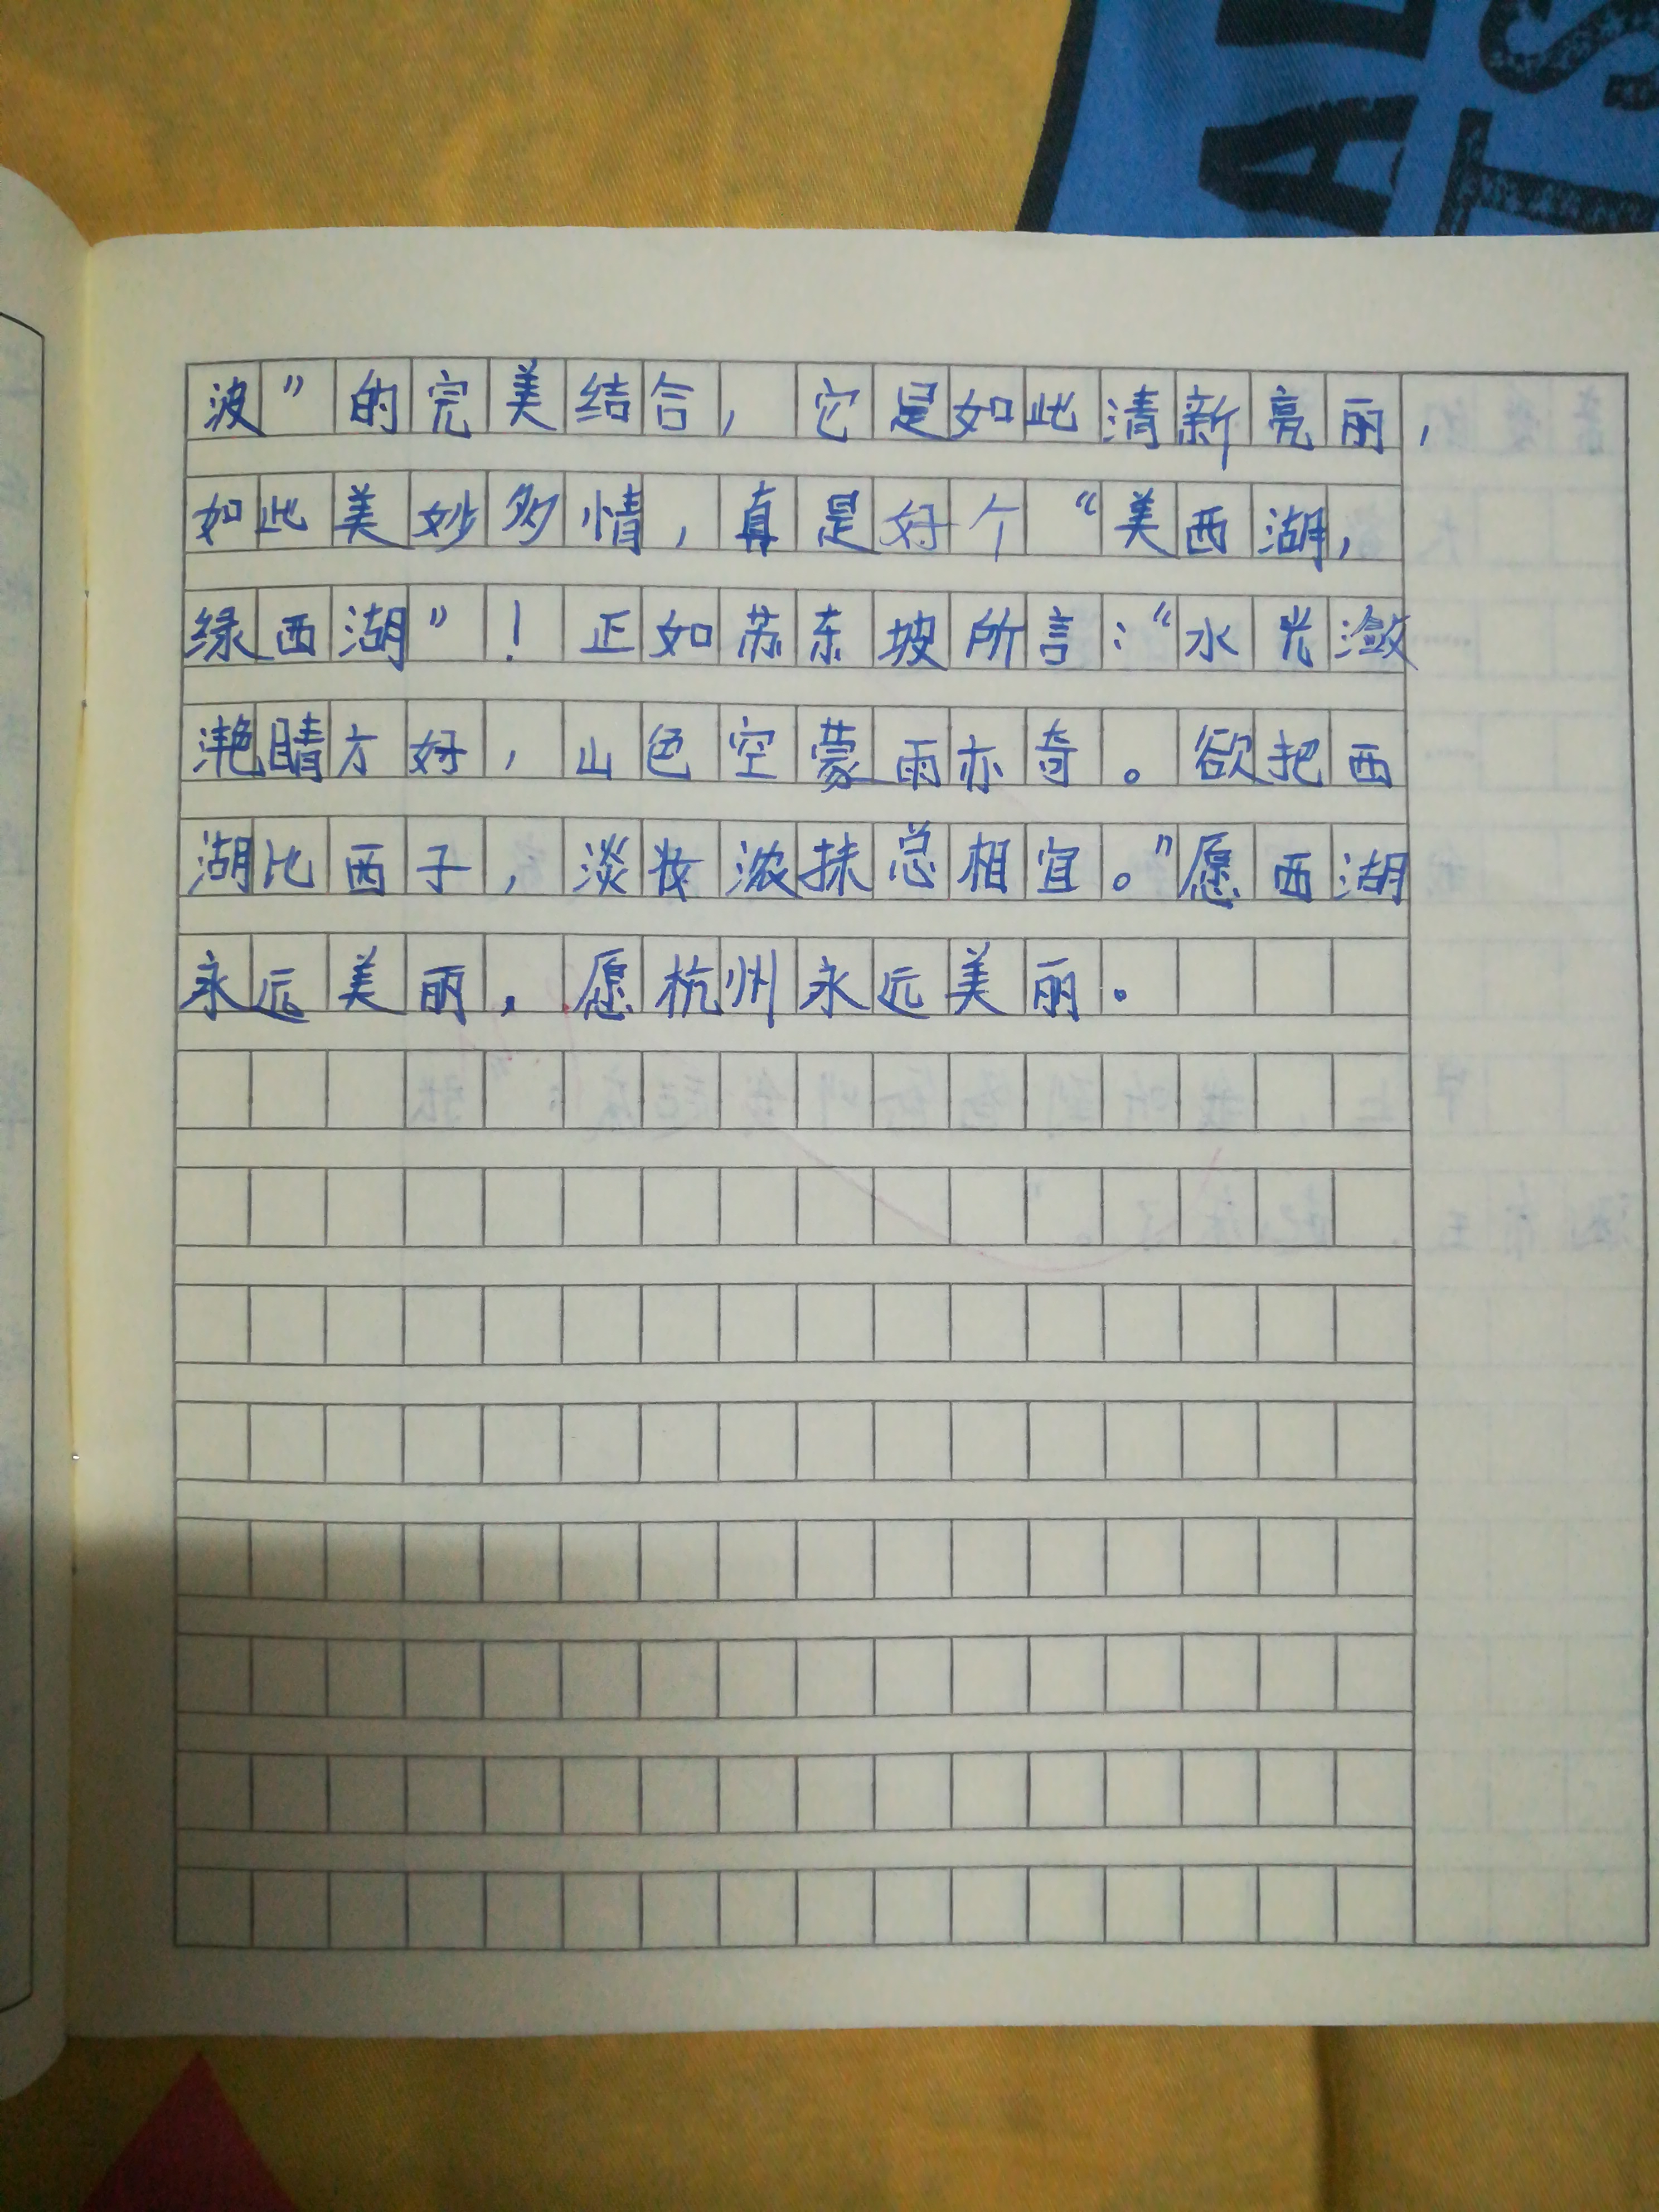 波”的完美结合，它是如此清新亮丽，
如此美妙多情，真是好个“美西湖，
绿西湖”！正如苏东坡所言：“水光潋
滟晴方好，山色空蒙雨亦奇。欲把西
湖比西子，淡妆浓抹总相宜。”愿西湖
永远美丽，愿杭州永远美丽。